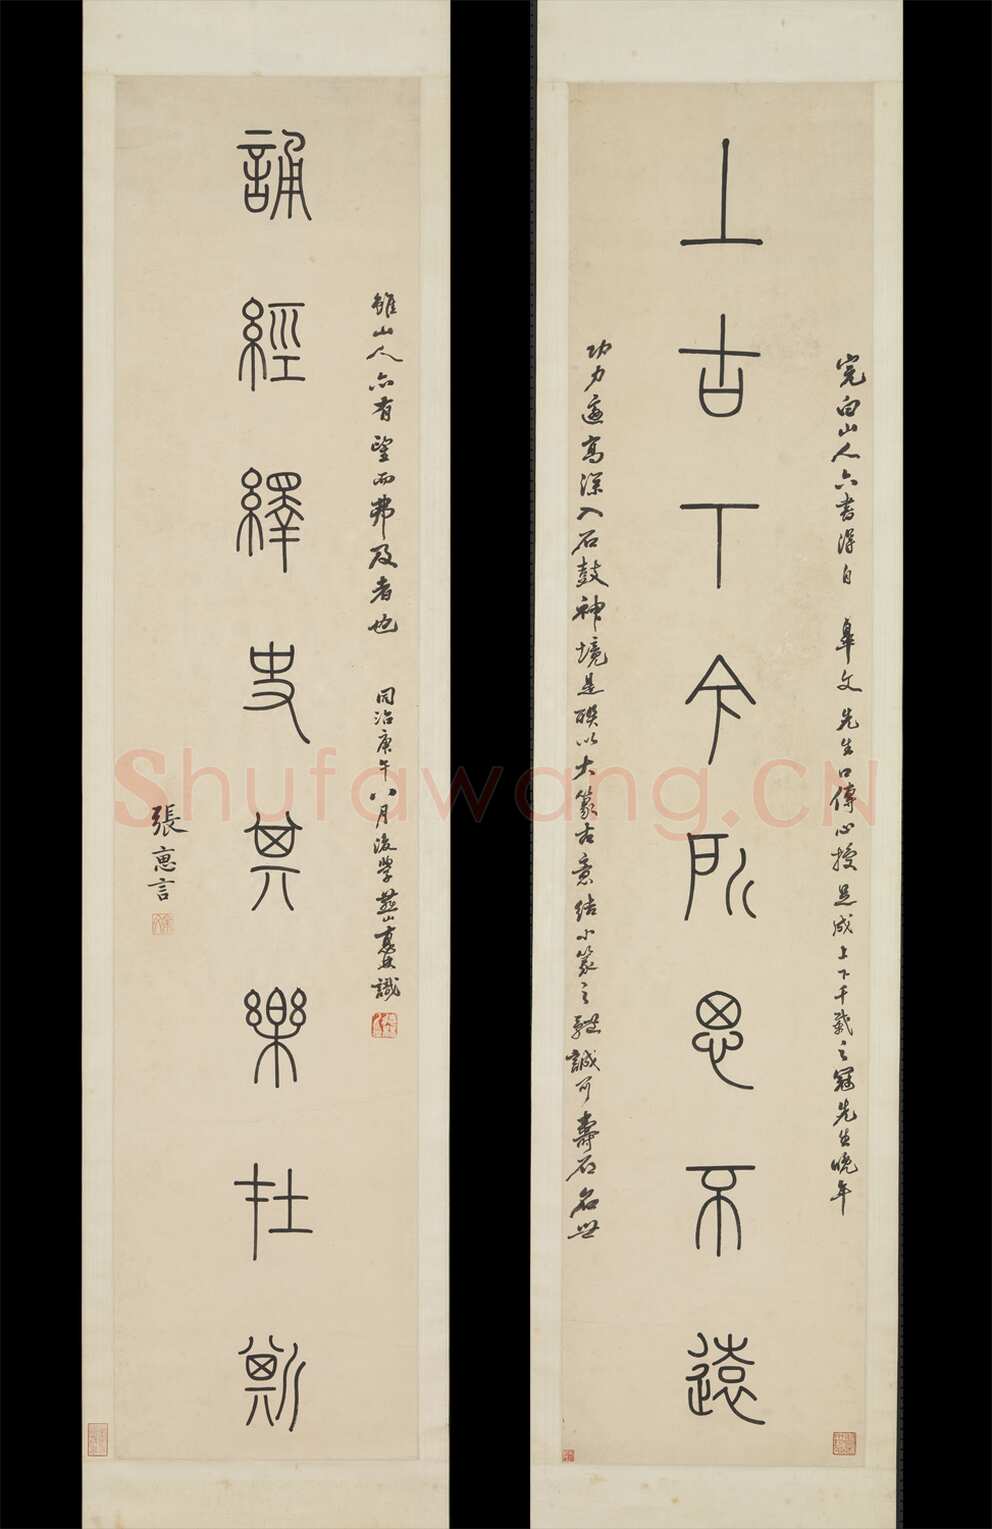 完白山人六書得自 皋文先生口傳心授是成上下千載之冠先生晚年
上古下今所思不遠
功力高深入石鼓神境是聯以大篆古意結小篆之體誠可壽石名世
雖山人亦有望而弗及者也 同治庚午八月後學 識
誦經繹史其樂在斯
張惠言
Shufawang.CN